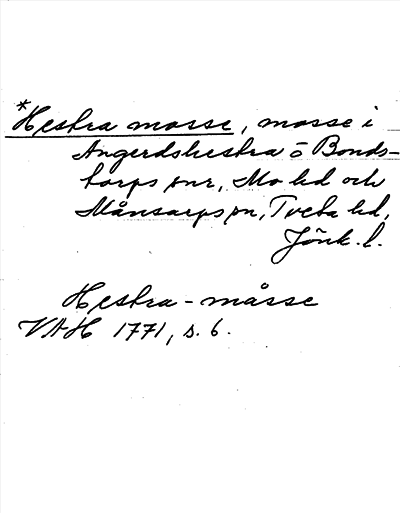 *Hestra mosse, mosse i
Angerdshestra o Bonds-
torps snr, Mo hd och
Månsarps sn, Tveta hd,
Jönk. l.
Hestra-måsse
VAH 1771, s. 6.